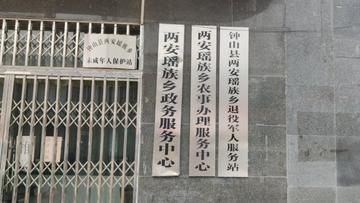 钟山县两安瑶族乡
未成年人保护站
两安瑶族乡政务服务中心
两安瑶族乡农事办理服务中心
钟山县两安瑶族乡退役军人服务站